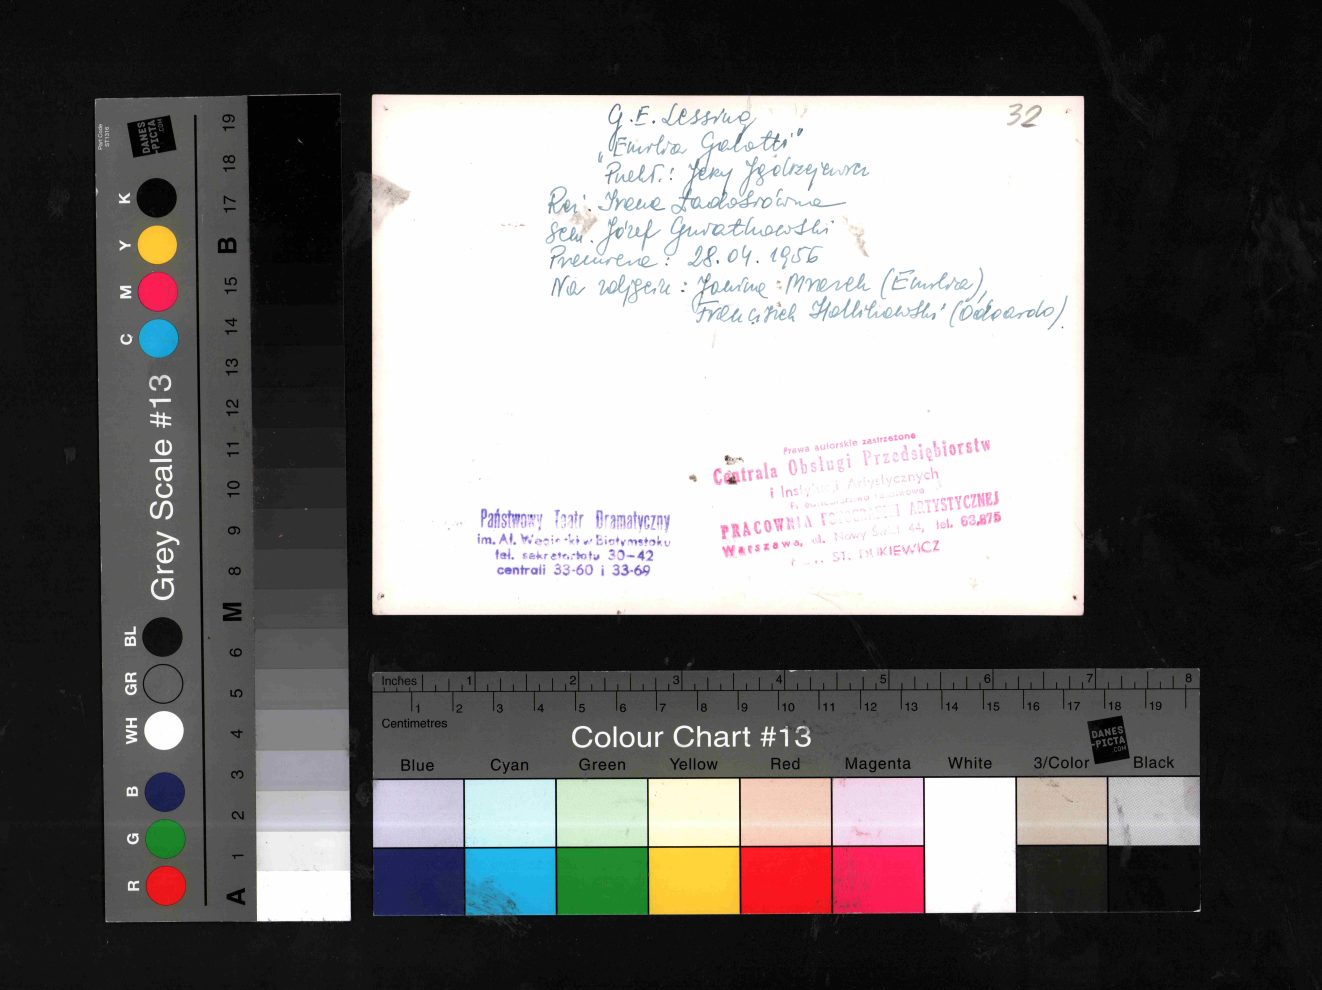 G. E. Lessing
32
„Emilia Galotti"
Przekł.: Jerzy Jędrzejewicz
Reż. Irena Ładosiówna
Scen. Józef Gwiatkowski
Premiera: 28.04.1956
Na zdjęciu: Janina Mrazek (Emilia),
Franciszek (Odoardo).
Prawa autorskie zastrzeżone
Centrala Obsługi Przedsiębiorstw
i Instytucji Artystycznych
PRACOWNIA FOTOGRAFII ARTYSTYCZNEJ
Warszawa, ul. Nowy Świat 44, tel. 63,875
ST. DUKIEWICZ
Państwowy Teatr Dramatyczny
im. Al. Węgierki w Białymstoku
tel. sekretariatu 30-42
centrali 33-60 i 33-69
Part Code
ST1316
DANES
-PICTA
.COM
Grey Scale #13
K
Y
M
C
BL
GR
WH
B
G
R
A 1 2 3 4 5 6 M 8 9 10 11 12 13 14 15 B 17 18 19
Inches 1 2 3 4 5 6 7 8
1 2 3 4 5 6 7 8 9 10 11 12 13 14 15 16 17 18 19
Centimetres
Colour Chart #13
DANES
-PICTA
.COM
Blue Cyan Green Yellow Red Magenta White 3/Color Black